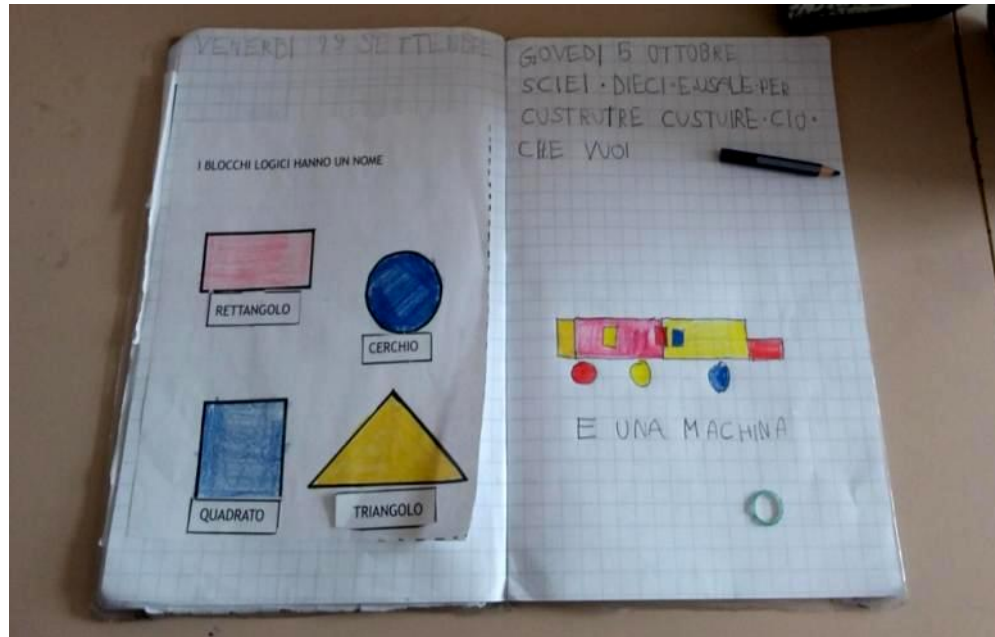 VENERDÌ 29 SETTEMBRE
I BLOCCHI LOGICI HANNO UN NOME
RETTANGOLO
CERCHIO
QUADRATO
TRIANGOLO
GOVEDÌ 5 OTTOBRE
SCIEI · DIECI · E USALE · PER
CUSTRUTRE CUSTUIRE · CIO ·
CHE VUOI
E UNA MACHINA